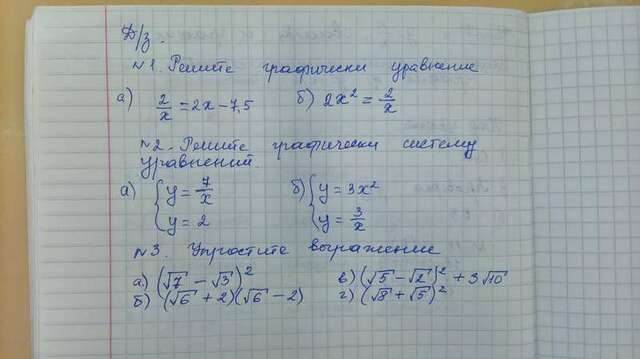 Д/з.
№1. Решите графически уравнение.
а) 2/x = 2x - 7,5 б) 2x² = 2/x
№2. Решите графически систему
уравнений.
а) { y = 7/x б) { y = 3x²
y = 2 y = 3/x
№3. Упростите выражение
а) (√7 - √3)² в) (√5 - √2)² + 3√10
б) (√6 + 2)(√6 - 2) г) (√8 + √5)²